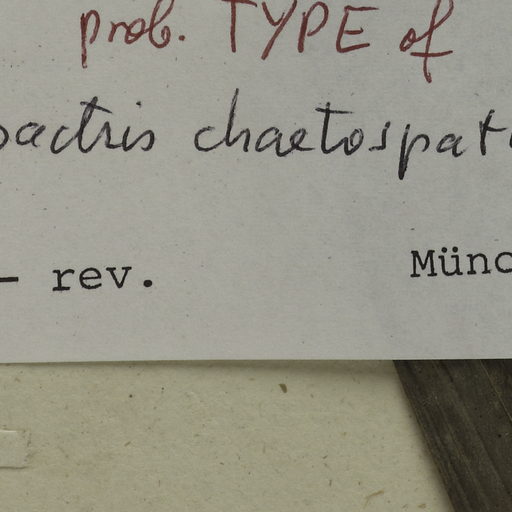 prob. TYPE of
bactris chaetospat
– rev. Münc